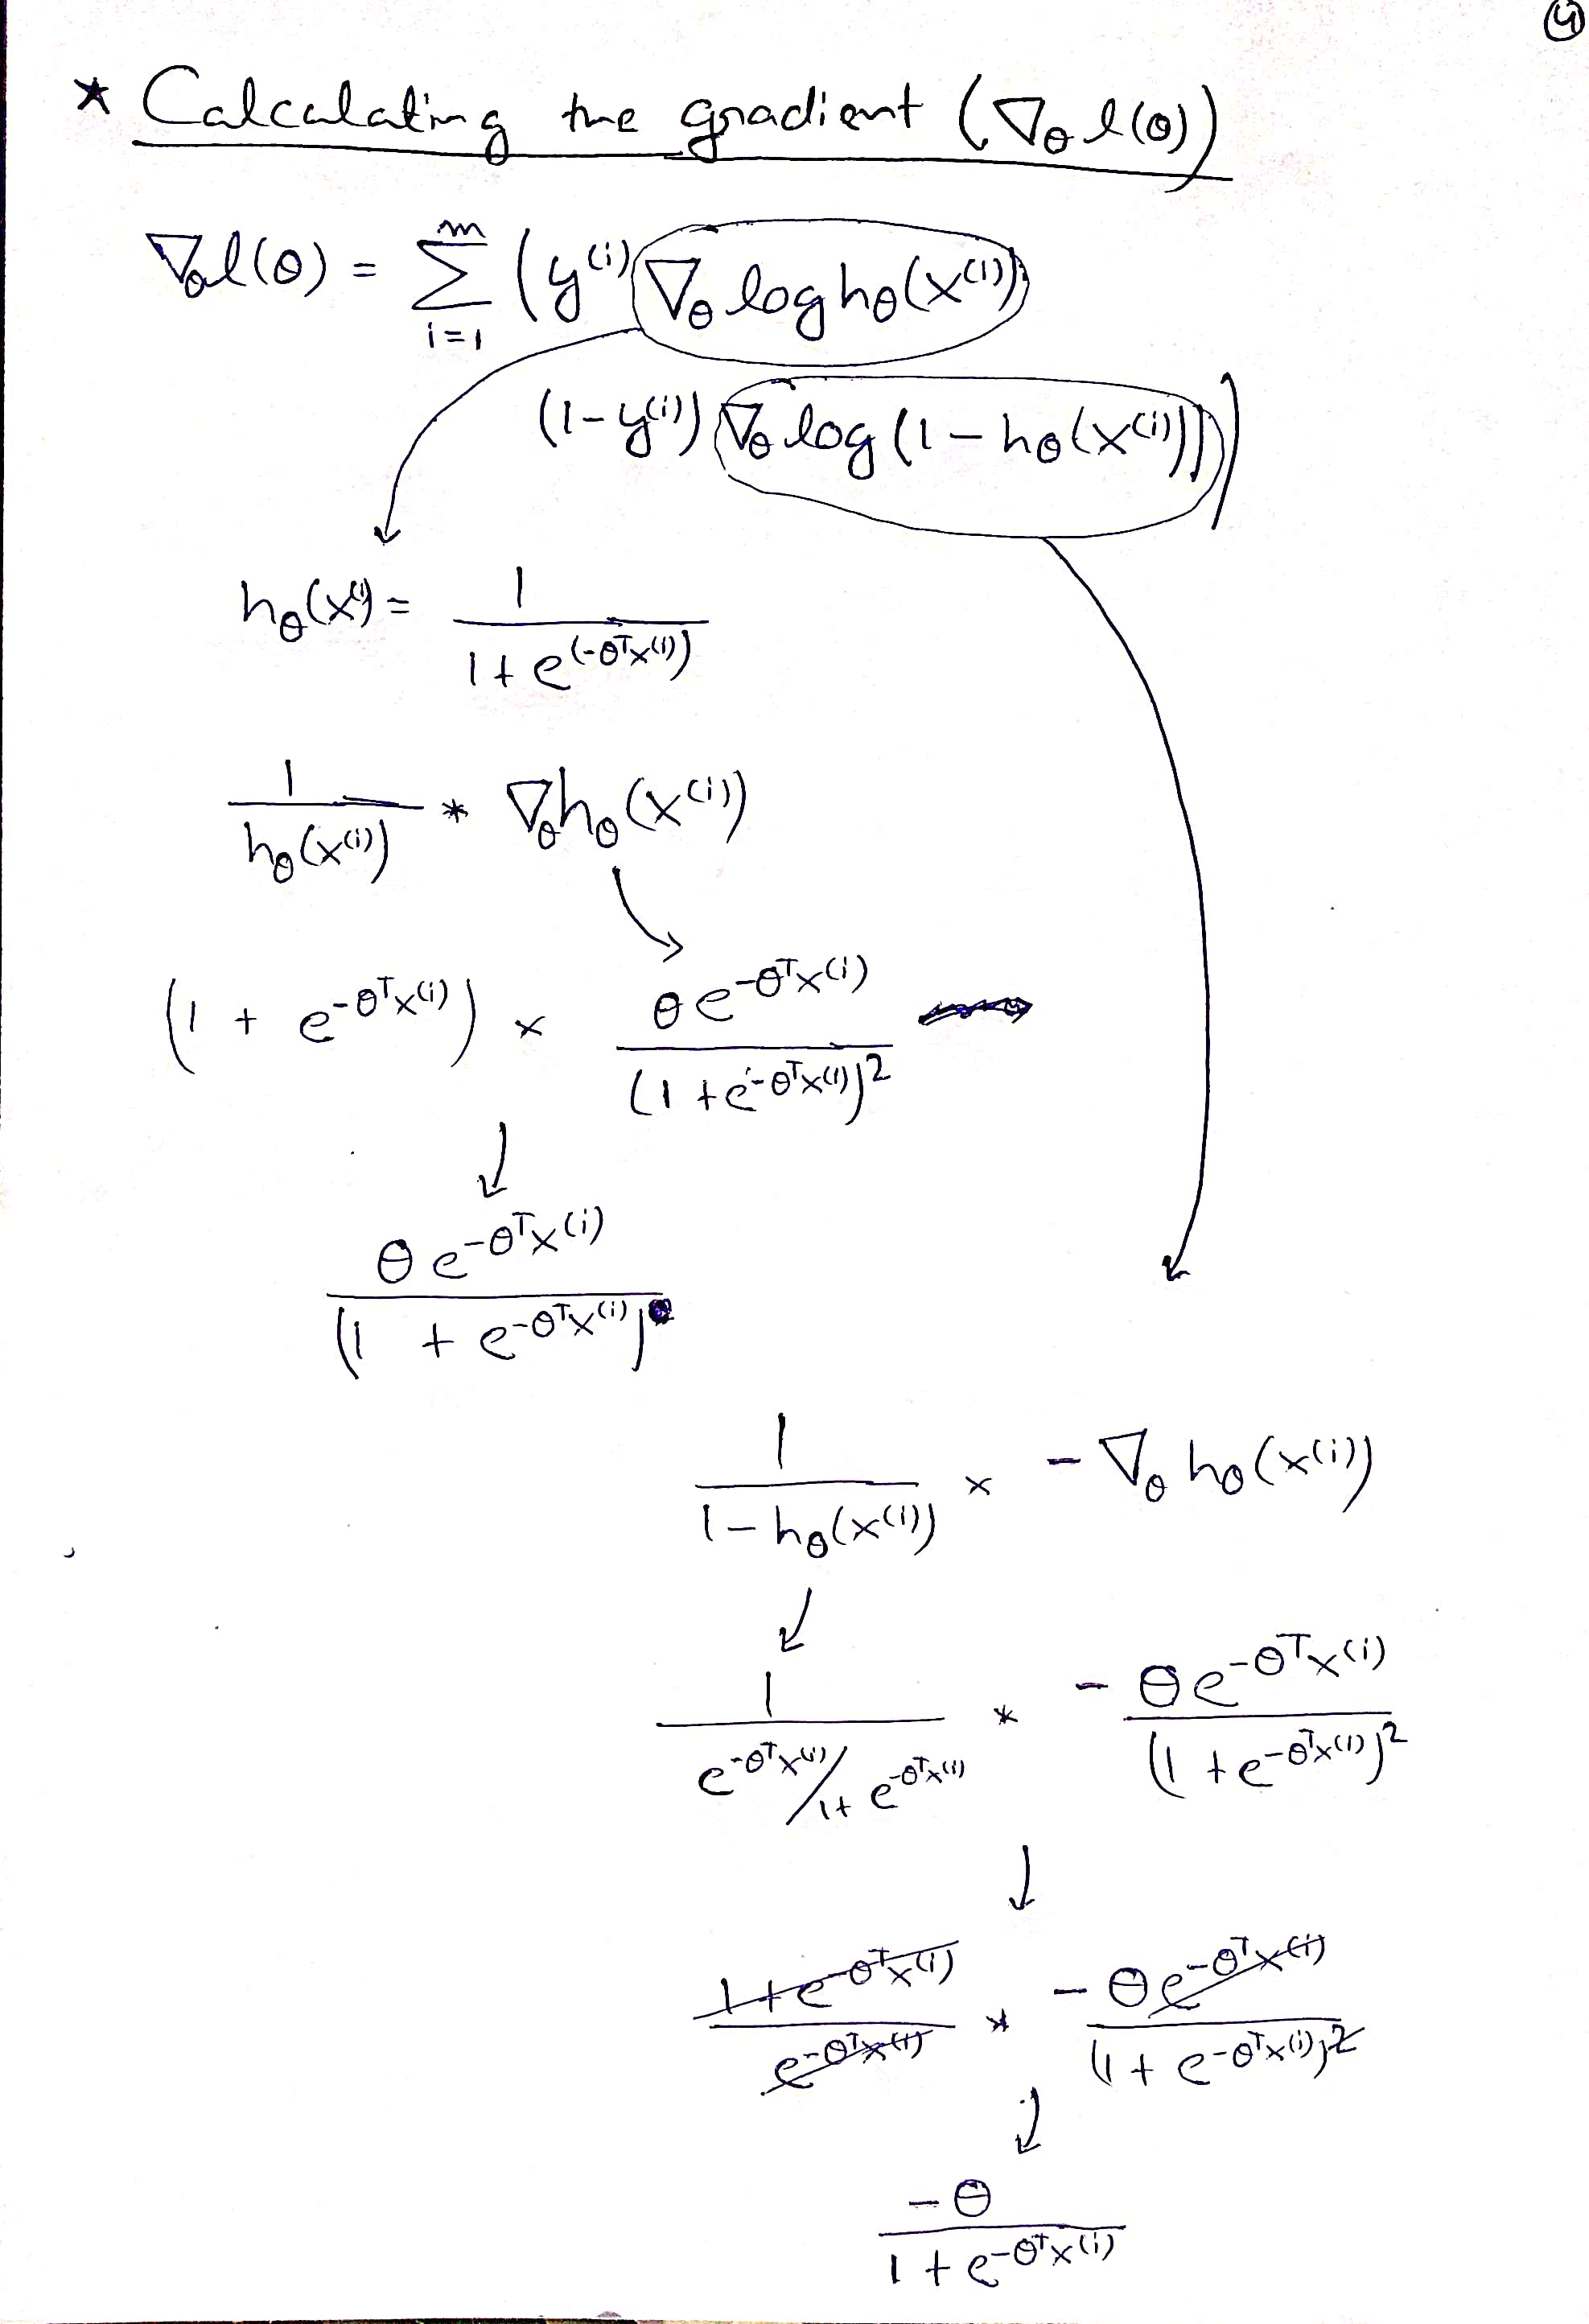 ④
* Calculating the gradient (∇_θ l(θ))
∇_θ l(θ) = Σ_{i=1}^{m} (y^{(i)} ∇_θ log h_θ(x^{(i)})
(1-y^{(i)}) ∇_θ log (1 - h_θ(x^{(i)})))
h_θ(x^{(i)}) = 1 / (1 + e^{(-θ^T x^{(i)})})
1 / h_θ(x^{(i)}) * ∇_θ h_θ(x^{(i)})
(1 + e^{-θ^T x^{(i)}}) × θ e^{-θ^T x^{(i)}} / (1 + e^{-θ^T x^{(i)}})^2
θ e^{-θ^T x^{(i)}} / (1 + e^{-θ^T x^{(i)}})
1 / (1 - h_θ(x^{(i)})) × - ∇_θ h_θ(x^{(i)})
1 / (e^{-θ^T x^{(i)}} / 1 + e^{-θ^T x^{(i)}}) * - θ e^{-θ^T x^{(i)}} / (1 + e^{-θ^T x^{(i)}})^2
1 + e^{-θ^T x^{(i)}} / e^{-θ^T x^{(i)}} * - θ e^{-θ^T x^{(i)}} / (1 + e^{-θ^T x^{(i)}})^2
-θ / (1 + e^{-θ^T x^{(i)}})